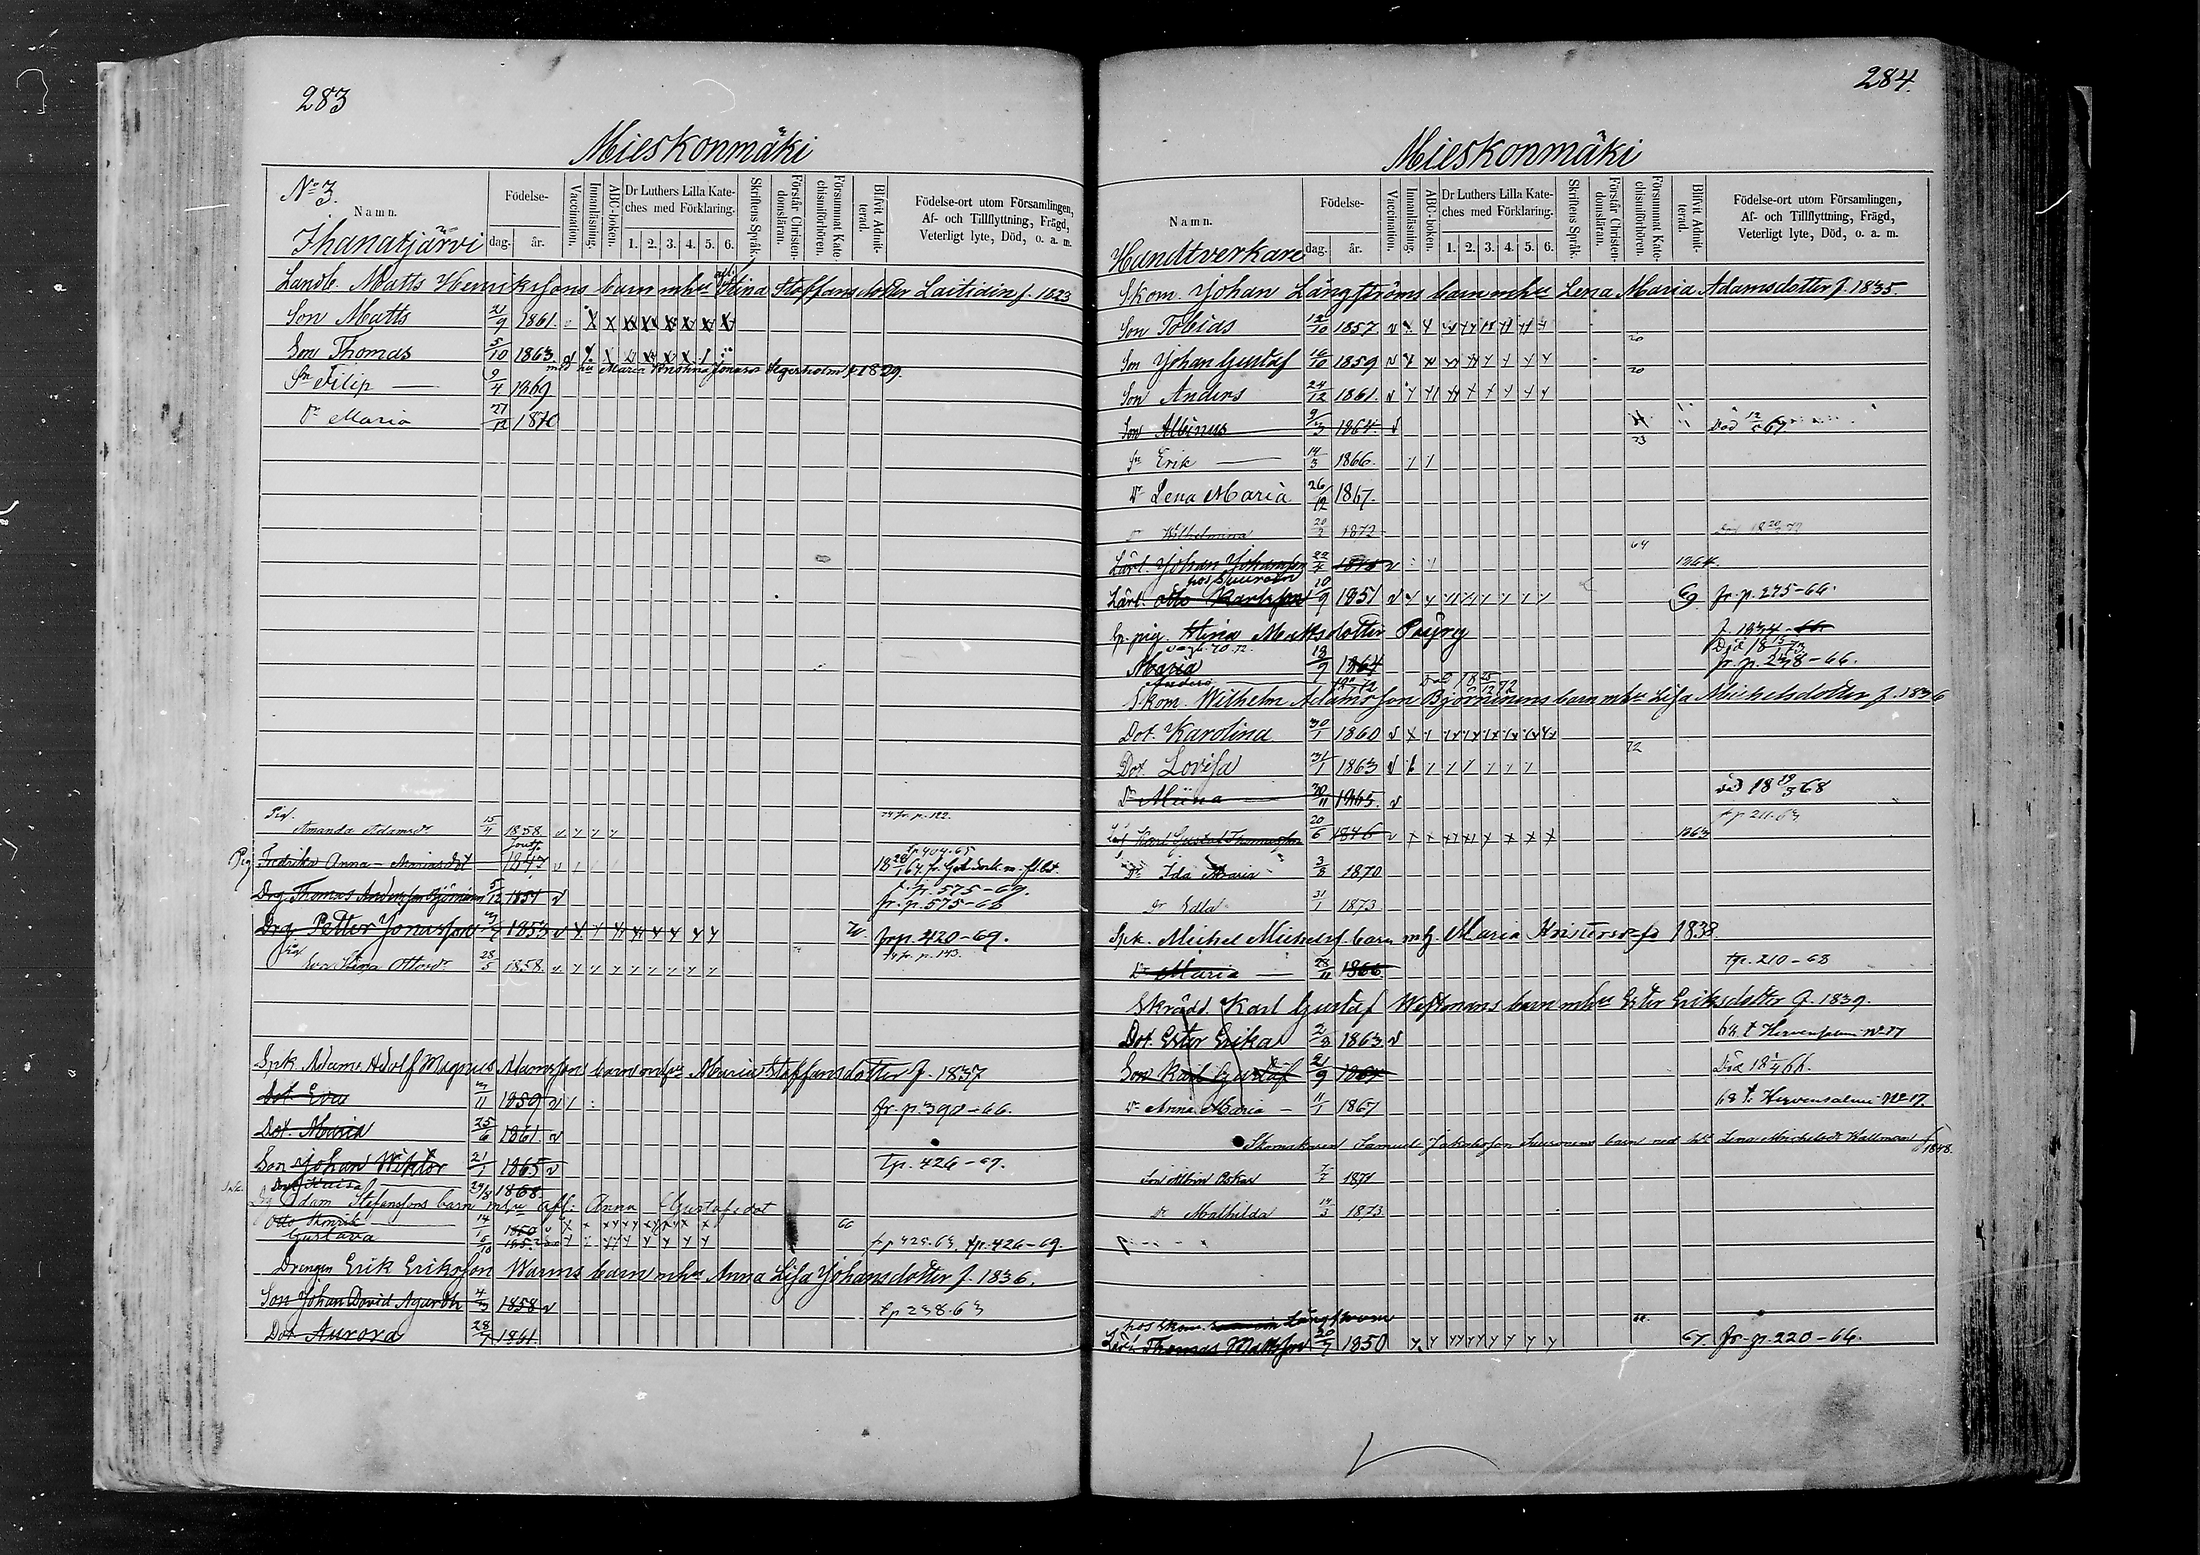 283
Mieskonmäki
No 3.
Namn.
Födelse-
dag. år.
Vaccination.
Innanläsning.
ABC-boken.
Dr Luthers Lilla Kate-
ches med Förklaring.
1. 2. 3. 4. 5. 6.
Skriftens Språk.
Förstår Christen-
domsläran.
Försummat Kate-
chismiförhören.
Blifvit Admit-
terad.
Födelse-ort utom Församlingen,
Af- och Tillflyttning, Frägd,
Veterligt lyte, Död, o. a. m.
Ihanatjärvi
Landb. Matts Henrikssons barn mhu Stina Staffansdotter Laitidin f. 1823
Son Matts 21/9 1861.
Son Thomas 5/10 1863.
med hu Maria Kristina Jonasd Segersholm f. 1829.
Sn Filip 9/4 1869
Dr Maria 27/12 1870
Pig.
Amanda Adamsdr 15/4 1858
fr. p. 122.
Pig Fredrika Anna-Mariasdot 1847
tp 404-65
Drg Thomas Andersson Björninen 5/12 1851
p. 575-69.
fr. p. 575-66
Drg Petter Jonasson 1853
fr p. 420-69.
Pig
Eva Stina Ottosdr 28/5 1858
fr. p. 143.
Spk. Adam Adolf Magnus Adamsson barn mhu Maria Staffansdotter f. 1837
Dot. Eva 1859
fr. p. 390-66.
Dot. Maria 25/6 1861.
Son Johan Wiktor 21/1 1865
Tp. 426-69.
Dr Lovisa 1868
Adam Stefanssons barn mhu afl: Anna Gustafsdot
Otto Henrik 14/1 1850
66
Gustava 6/10 1852
tp 425-63. tp. 426-69.
Drengen Erik Eriksson Warms barn mhu Anna Lisa Johansdotter f. 1836.
Son Johan David Agarth 4/3 1858
tp 238-63
Dot Aurora 28/7 1861.
284.
Mieskonmäki
Namn.
Födelse-
dag. år.
Vaccination.
Innanläsning.
ABC-boken.
Dr Luthers Lilla Kate-
ches med Förklaring.
1. 2. 3. 4. 5. 6.
Skriftens Språk.
Förstår Christen-
domsläran.
Försummat Kate-
chismiförhören.
Blifvit Admit-
terad.
Födelse-ort utom Församlingen,
Af- och Tillflyttning, Frägd,
Veterligt lyte, Död, o. a. m.
Handtverkare
Skom. Johan Långströms barn mhu Lena Maria Adamsdotter f. 1835.
Son Tobias 12/10 1857
20
Son Johan Gustaf 16/10 1859
20
Son Anders 24/12 1861.
Son Albinus 9/3 1864.
Död
73
Sn Erik 14/3 1866.
Dr Lena Maria 26/12 1867.
Dr Wilhelmina 20/2 1872
64
Lärl. Johan Johansson
1864.
Lärl. Otto Karlsson 10/9 1851
69 fr. p. 275-66.
Sp. pig. Stina Mattsdotter Pöyry
f. 1834
Maria 18/9 1864
fr. p. 248-66.
Anders
Skom. Wilhelm Adamsson Björninens barn mhu Lisa Michelsdotter f. 1836
Dot. Karolina 30/1 1860
72
Dot. Lovisa 31/1 1863
Dr Miina 30/11 1865.
död 18 68
Lärl Karl Gustaf Thomasson 20/6 1846
1863
tp 211-63
Dr Ida Maria 3/8 1870
Dr Edla 31/1 1873
Spk. Michel Michelss. barn mh. Maria Kristersd. f. 1838
Dr Maria 28/11 1866
tp. 210-68
Skrädd. Karl Gustaf Westmans barn mhu Ester Eriksdotter f. 1839.
Dot. Ester Erika 2/8 1863
68 t. Hirvensalmi No 17
Son Karl Gustaf 21/9 1864
Död 18 66.
Dr Anna Maria 11/1 1867
68 t. Hirvensalmi No 17.
Skomakaren Samuel Jakobsson Suuronens barn med hu Lena Michelsdr Wallman f. 1848.
Son Albin Oskar 7/7 1871
Dr Mathilda 14/3 1873
hos skom. Långström
Lärl. Thomas Mattsson 20/7 1850
67. fr. p. 220-66.